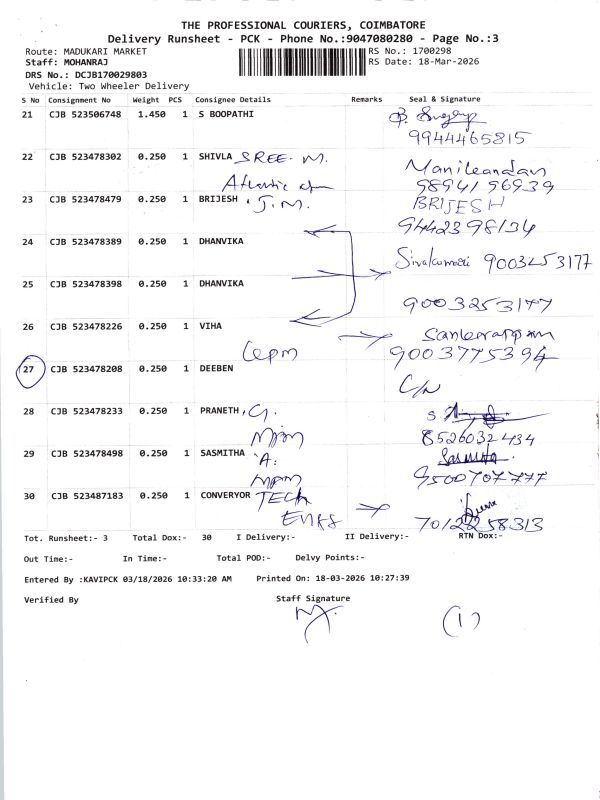 THE PROFESSIONAL COURIERS, COIMBATORE
Delivery Runsheet - PCK - Phone No.:9047080280 - Page No.:3
Route: MADUKARI MARKET RS No.: 1700298
Staff: MOHANRAJ RS Date: 18-Mar-2026
DRS No.: DCJB170029803
Vehicle: Two Wheeler Delivery
S No Consignment No Weight PCS Consignee Details Remarks Seal & Signature
21 CJB 523506748 1.450 1 S BOOPATHI
9944465815
22 CJB 523478302 0.250 1 SHIVLA SREE. M. Manikandan
Atlantic 9894196939
23 CJB 523478479 0.250 1 BRIJESH . J.M. BRIJESH
9442398134
24 CJB 523478389 0.250 1 DHANVIKA
Sivakumari 9003253177
25 CJB 523478398 0.250 1 DHANVIKA
9003253177
26 CJB 523478226 0.250 1 VIHA
9003775394
27 CJB 523478208 0.250 1 DEEBEN
C/N
28 CJB 523478233 0.250 1 PRANETH, G. S
8526032434
29 CJB 523478498 0.250 1 SASMITHA A. Sasmitha
9500707777
30 CJB 523487183 0.250 1 CONVERYOR TECH
7012258313
Tot. Runsheet:- 3 Total Dox:- 30 I Delivery:- II Delivery:- RTN Dox:-
Out Time:- In Time:- Total POD:- Delvy Points:-
Entered By :KAVIPCK 03/18/2026 10:33:20 AM Printed On: 18-03-2026 10:27:39
Verified By Staff Signature
(1)